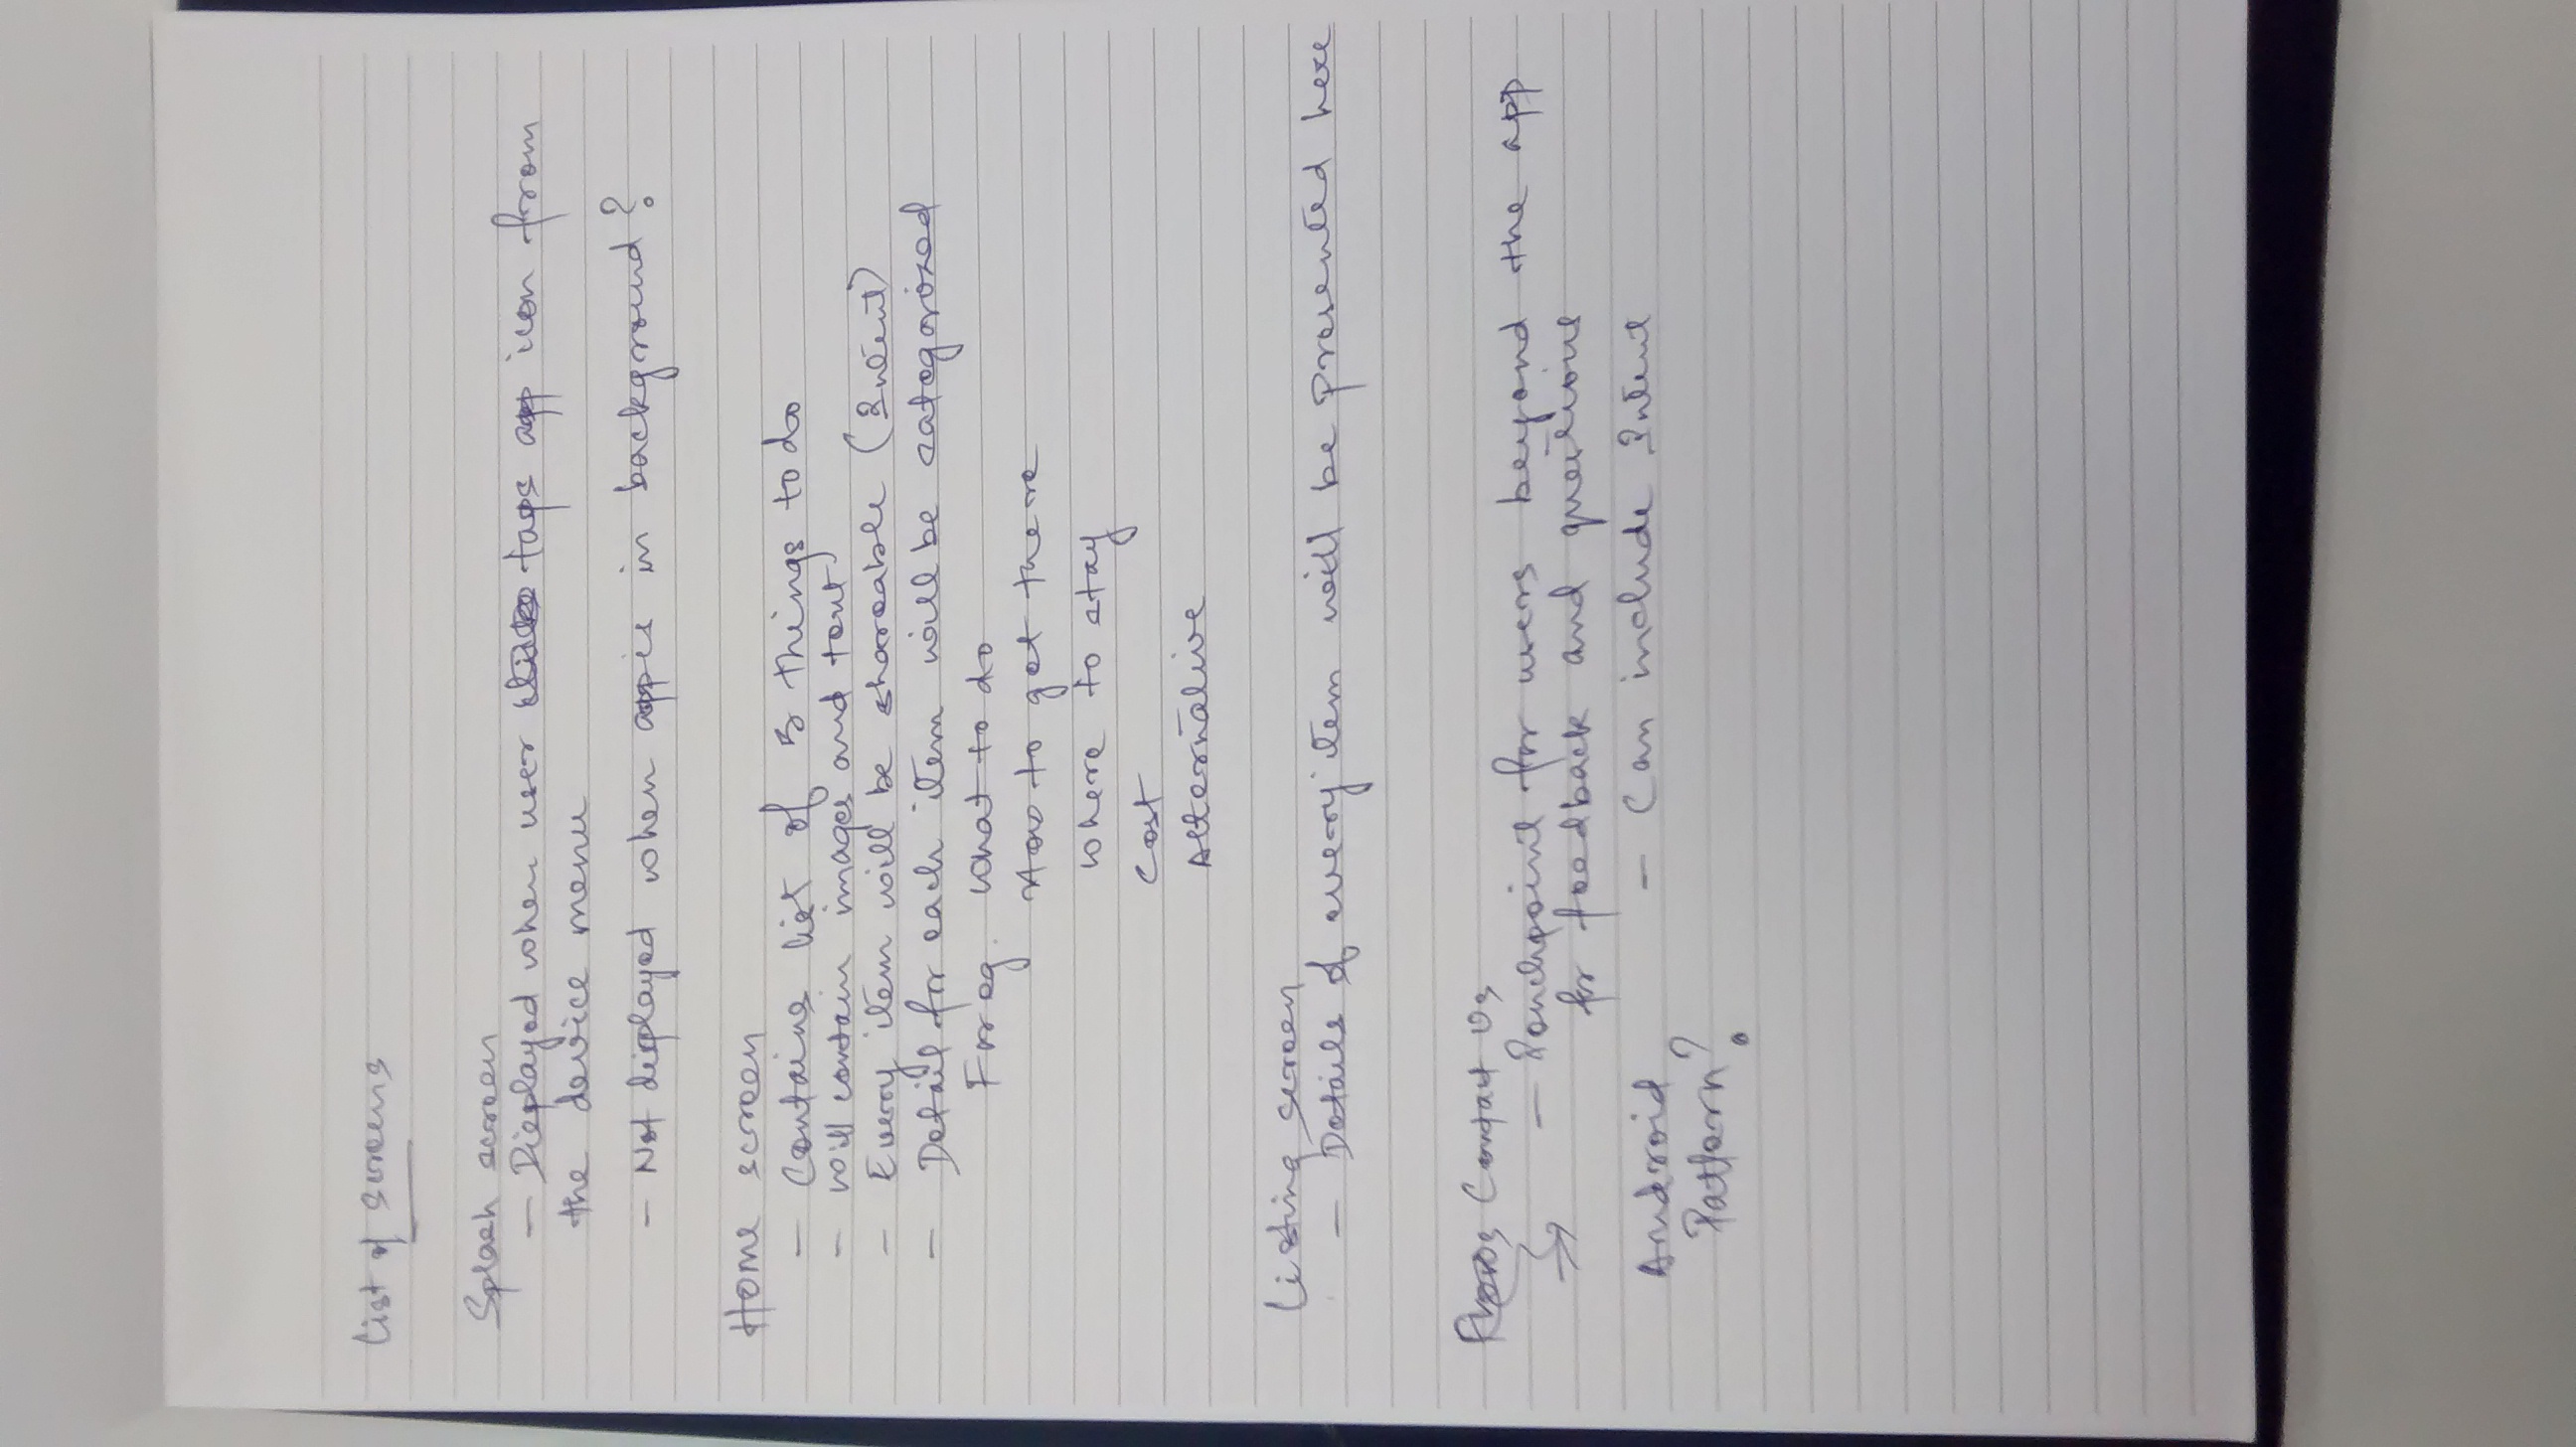 List of screens
Splash screen
- Displayed when user taps app icon from
the device menu
- Not displayed when app is in background?
Home screen
- Contains list of 5 things to do
- will contain images and text
- Every item will be shareable (Intent)
- Detail for each item will be categorized
For eg. what to do
How to get there
where to stay
Cost
Alternative
Listing screen
- Details of every item will be presented here
Contact Us
- Touchpoint for users beyond the app
for feedback and questions
- Can include Intent
Android
Pattern?